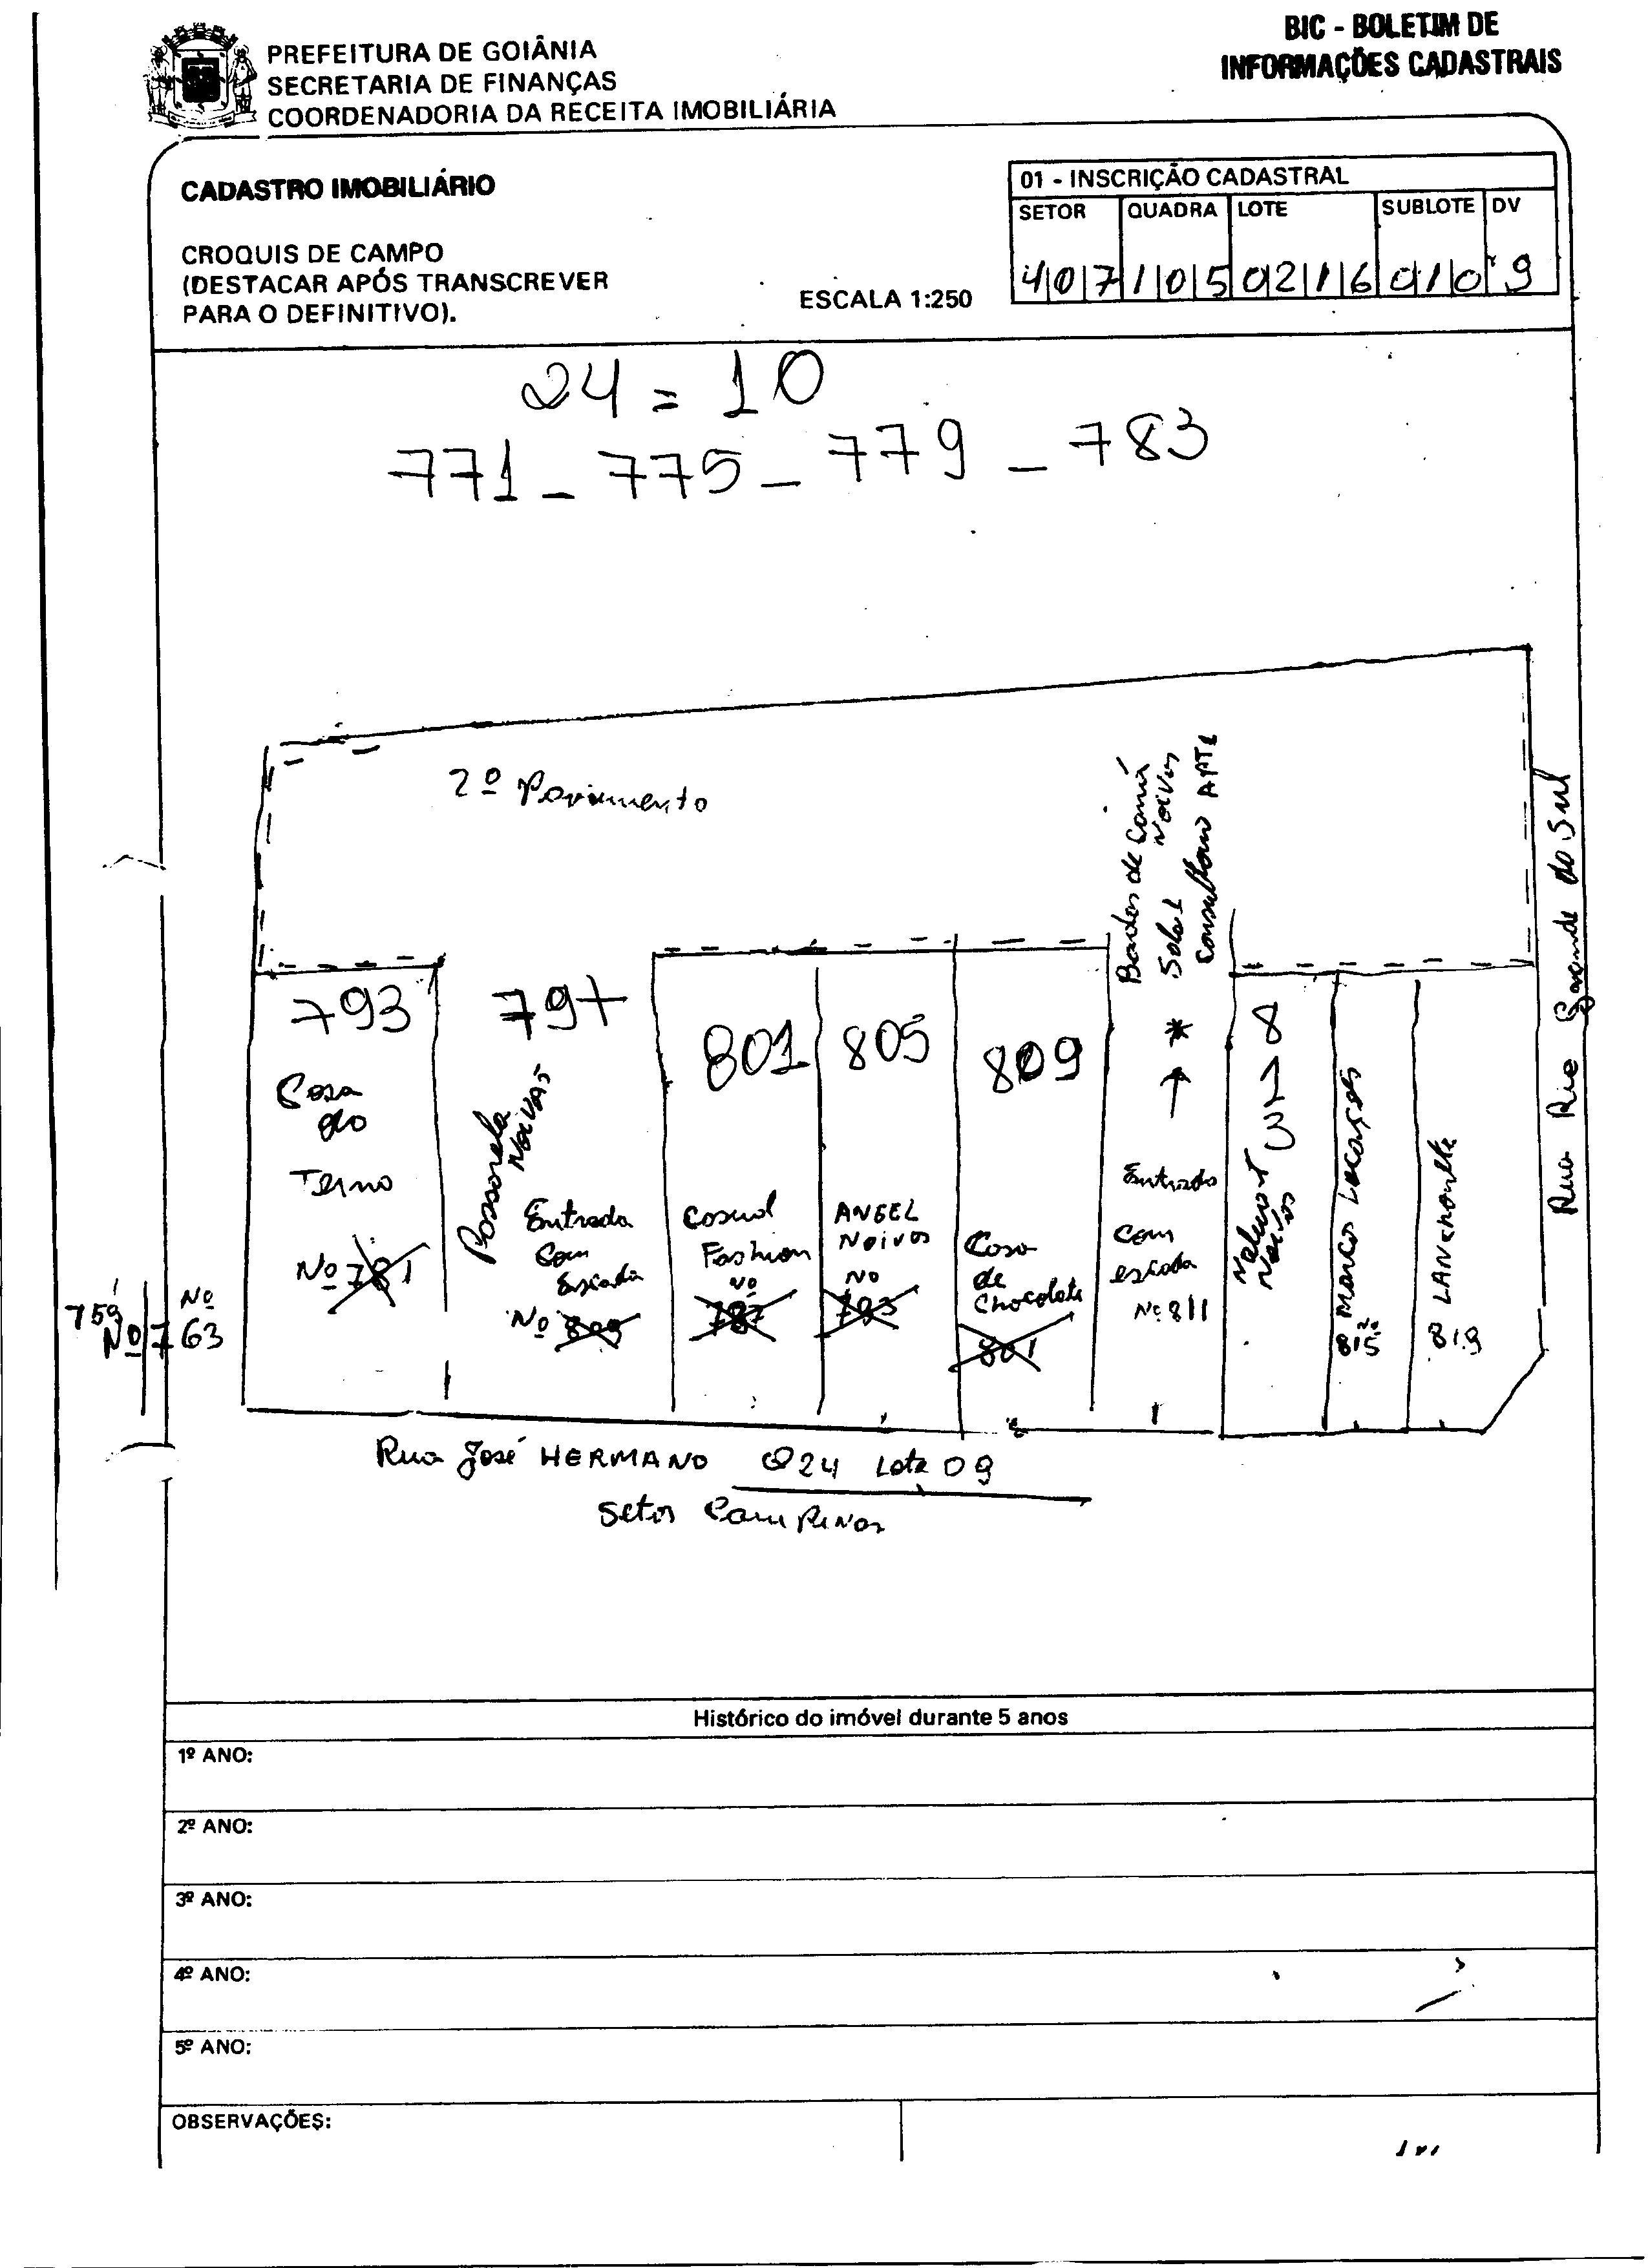 BIC - BOLETIM DE
INFORMAÇÕES CADASTRAIS
PREFEITURA DE GOIÂNIA
SECRETARIA DE FINANÇAS
COORDENADORIA DA RECEITA IMOBILIÁRIA
CADASTRO IMOBILIÁRIO
CROQUIS DE CAMPO
(DESTACAR APÓS TRANSCREVER
PARA O DEFINITIVO).
ESCALA 1:250
01 - INSCRIÇÃO CADASTRAL
SETOR QUADRA LOTE SUBLOTE DV
407 105 0216 010 9
24 = 10
771 - 775 - 779 - 783
2º Pavimento
Rua Rio Grande do Sul
Noivas
Sala 1
Consultorio APT 1
793
Casa
do
Terno
Nº 781
797
Passarela
NOIVAS
Entrada
Com
Escada
Nº 809
801
Casual
Fashion
Nº
787
805
ANGEL
Noivas
Nº
793
809
Casa
de
Chocolate
801
*
Entrada
com
escada
Nº 811
813
Noivas
Marco Locações
Nº
815
LANchonete
819
759
Nº
Nº
763
Rua José HERMANO Q24 Lote 09
Setor Campinas
Histórico do imóvel durante 5 anos
1º ANO:
2º ANO:
3º ANO:
4º ANO:
5º ANO:
OBSERVAÇÕES: